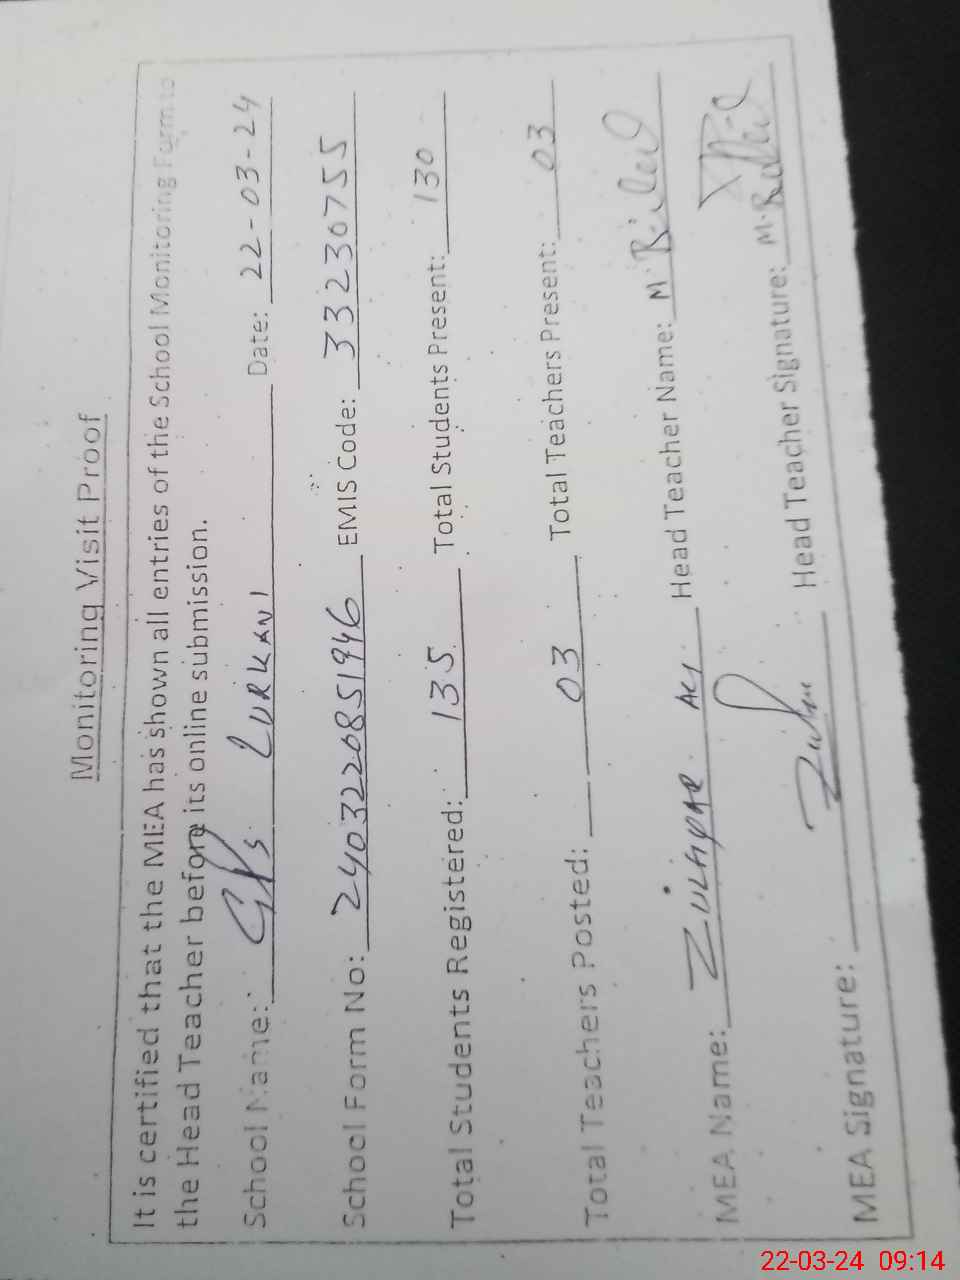 Monitoring Visit Proof
It is certified that the MEA has shown all entries of the School Monitoring Form to
the Head Teacher before its online submission.
School Name: GPS LURKANI Date: 22-03-24
School Form No: 2403220851946 EMIS Code: 33230755
Total Students Registered: 135 Total Students Present: 130
Total Teachers Posted: 03 Total Teachers Present: 03
MEA Name: ZULFIQAR ALI Head Teacher Name: M. Bilal
MEA Signature: Head Teacher Signature: M. Bilal
22-03-24 09:14